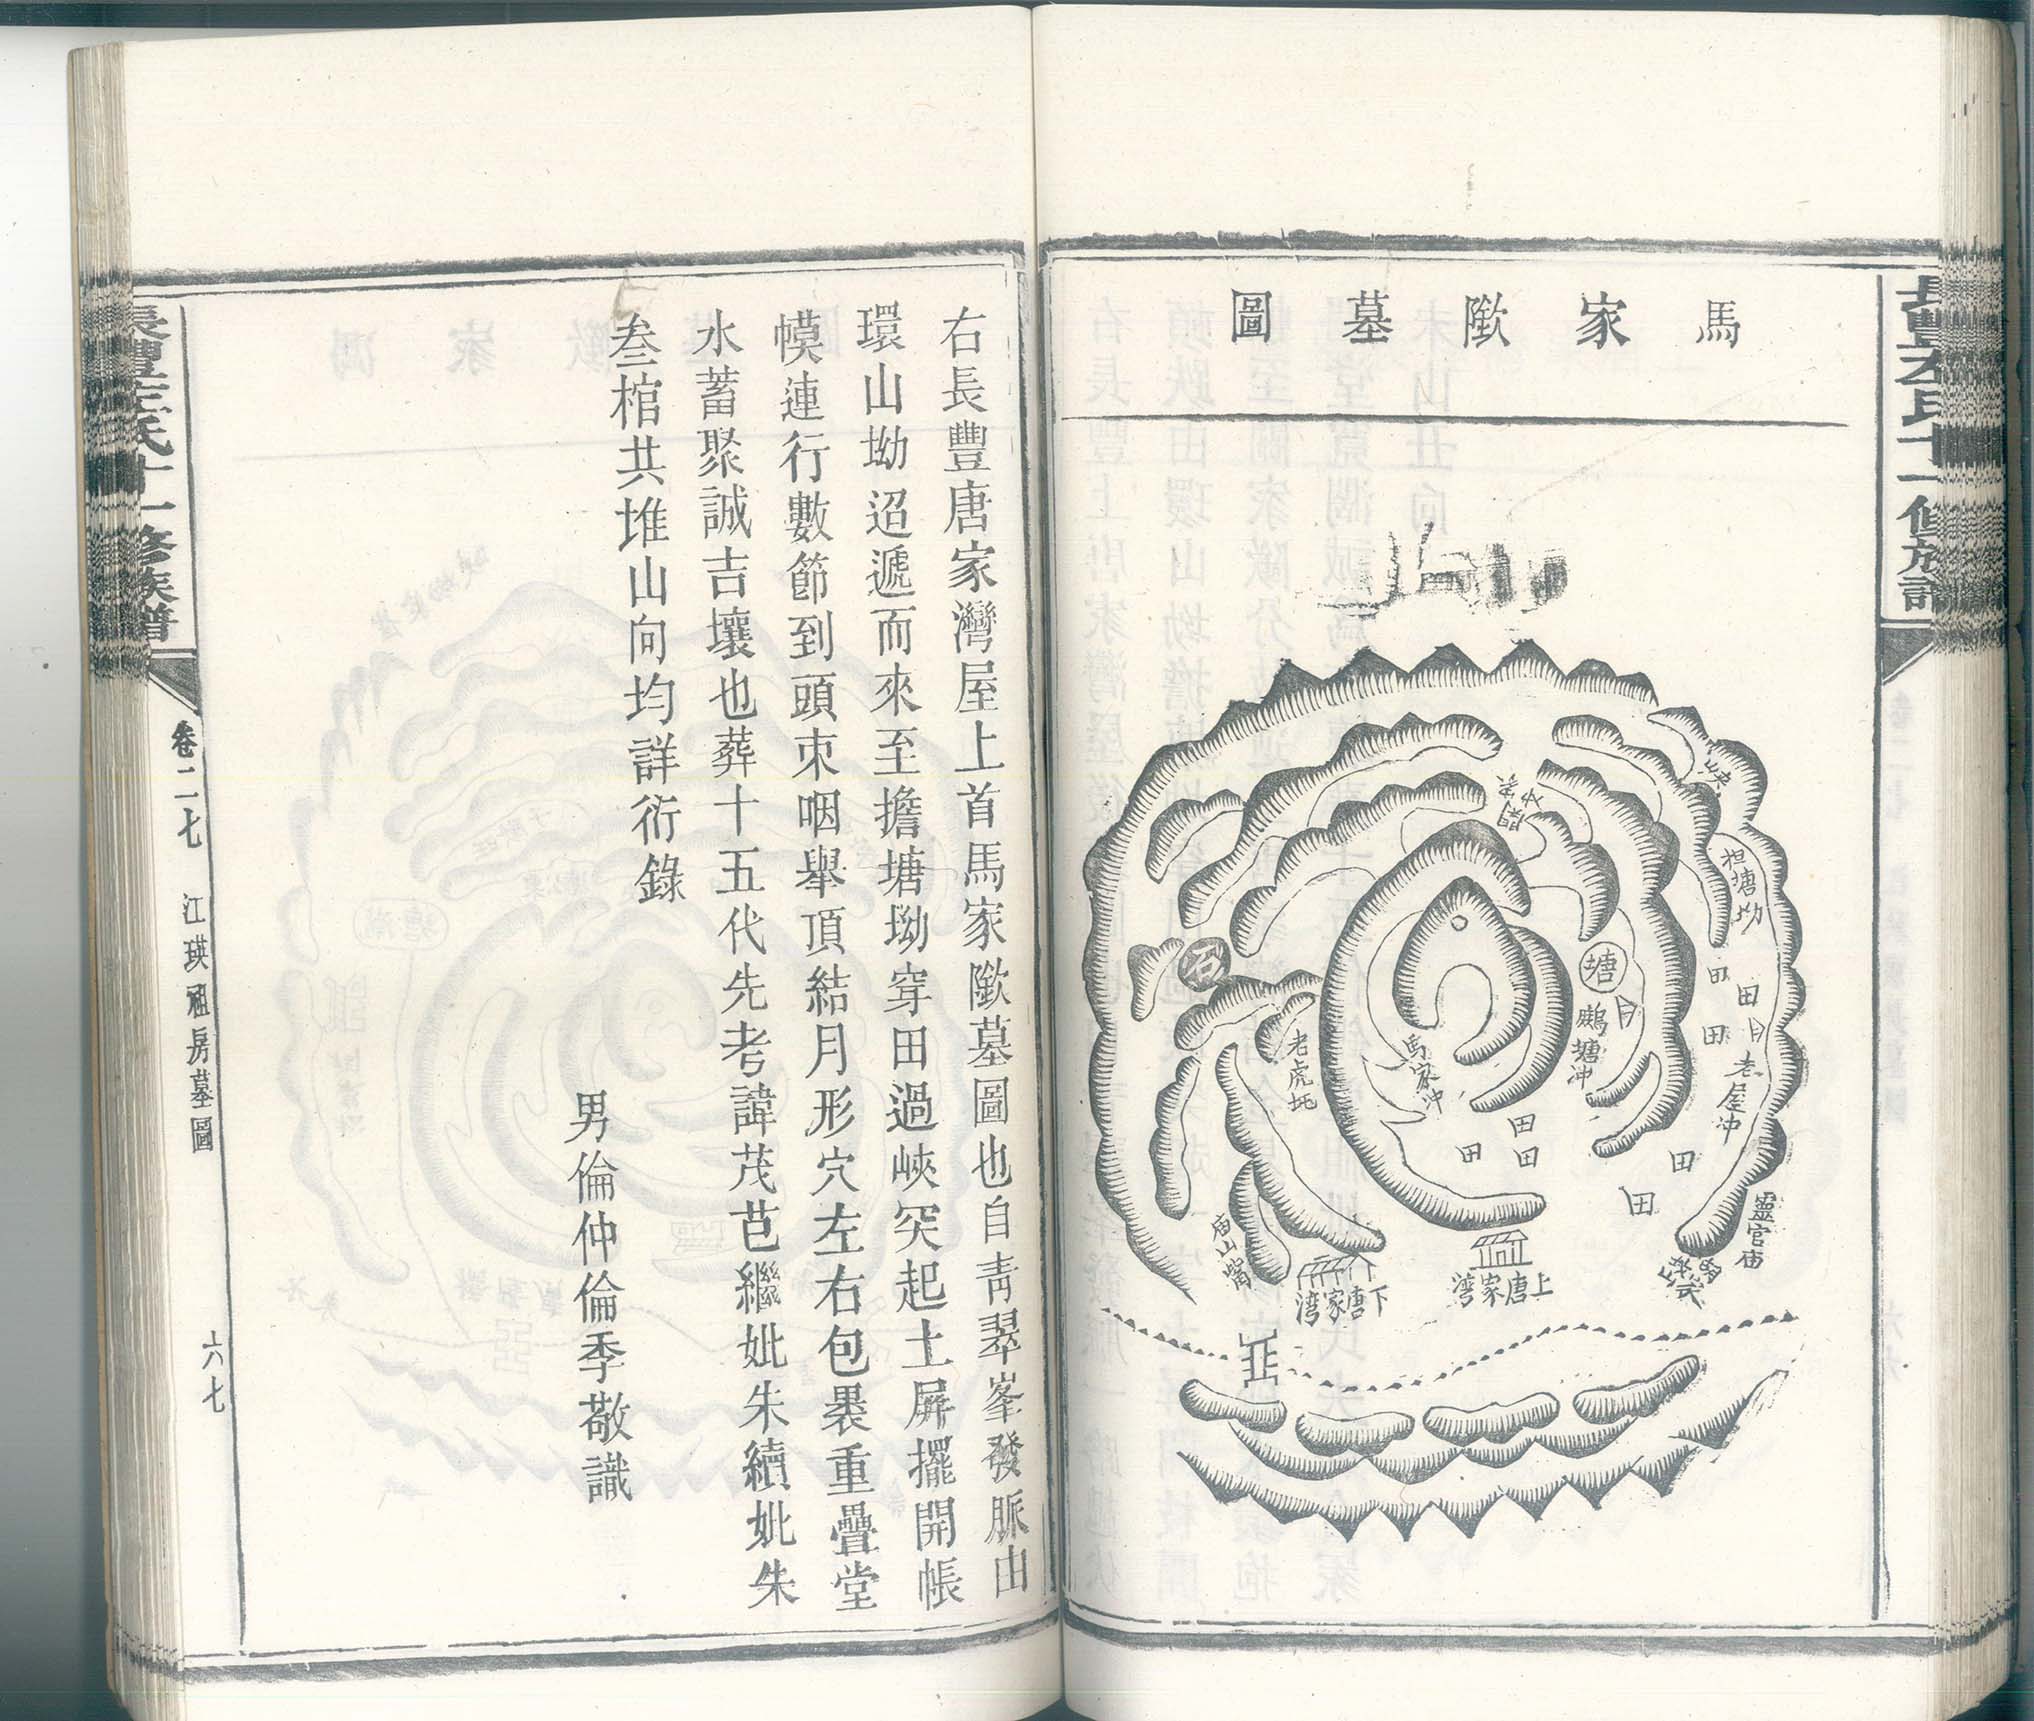 馬家歟墓圖
峽
担塘坳
田
田
田
老屋冲
田
田
靈官庙
塘
鵬塘冲
石
老虎坉
馬家冲
田
田
田
庙山嘴
上唐家湾
下唐家湾
右長豐唐家灣屋上首馬家歟墓圖也自青翠峯發脈由
環山坳迢遞而來至擔塘坳穿田過峽突起土屏擺開帳
幙連行數節到頭朿咽舉頂結月形穴左右包裹重疊堂
水蓄聚誠吉壤也葬十五代先考諱茂芑繼妣朱續妣朱
叁棺共堆山向均詳衍錄
男倫仲倫季敬識
長豐左氏十一修族譜
卷二七
江瑛祖房墓圖
六七